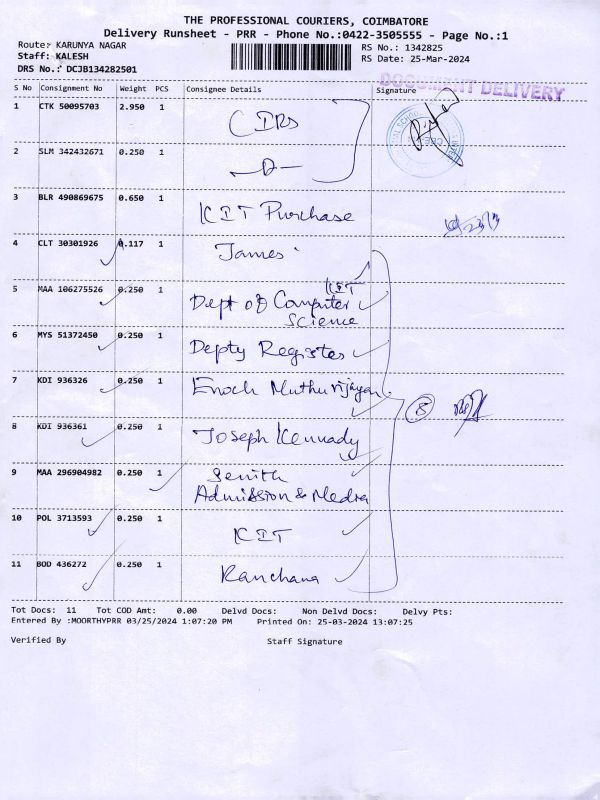 THE PROFESSIONAL COURIERS, COIMBATORE
Delivery Runsheet - PRR - Phone No.:0422-3505555 - Page No.:1
Route: KARUNYA NAGAR
RS No.: 1342825
Staff: KALESH
RS Date: 25-Mar-2024
DRS No.: DCJB134282501
DOCUMENT DELIVERY
S No Consignment No Weight PCS Consignee Details Signature
1 CTK 50095703 2.950 1 CDRs
2 SLM 342432671 0.250 1 —D—
3 BLR 490869675 0.650 1 KIT Purchase
4 CLT 30301926 0.117 1 James
KIT
5 MAA 106275526 0.250 1 Dept of Computer
Science
6 MYS 51372450 0.250 1 Depty Register
7 KDI 936326 0.250 1 Enoch Muthuvijayan
8
8 KDI 936361 0.250 1 Joseph Kennady
9 MAA 296904982 0.250 1 Senith
Admission & Media
10 POL 3713593 0.250 1 KIT
11 BOD 436272 0.250 1 Kanchana
Tot Docs: 11 Tot COD Amt: 0.00 Delvd Docs: Non Delvd Docs: Delvy Pts:
Entered By :MOORTHYPRR 03/25/2024 1:07:20 PM Printed On: 25-03-2024 13:07:25
Verified By Staff Signature